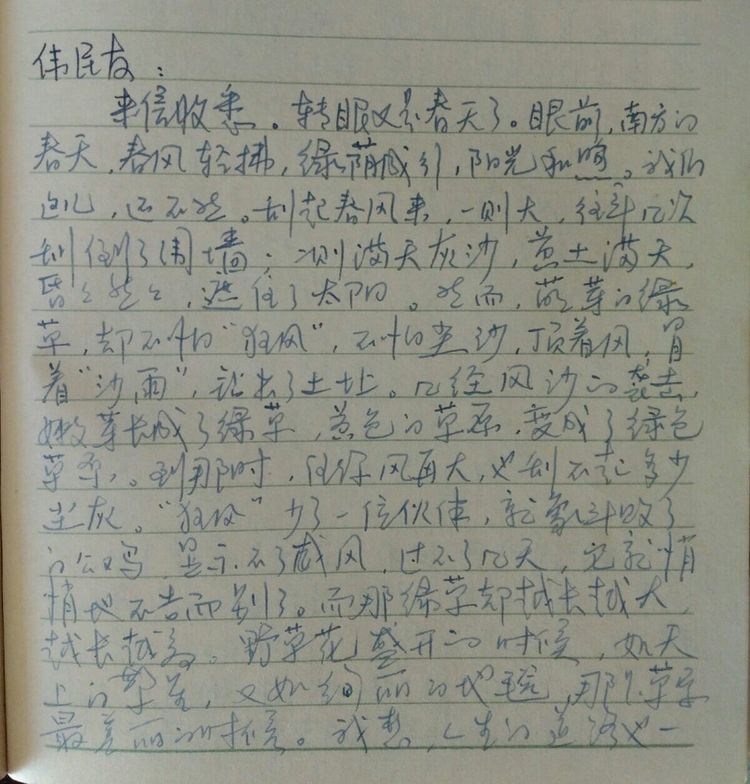 伟民友：
来信收悉。转眼又是春天了。眼前，南方的
春天，春风轻拂，绿荫成引，阳光和煦。我们
这儿，还不然。刮起春风来，一则大，往年几次
刮倒了围墙；二则满天灰沙，黄土满天，
昏昏然然，遮住了太阳。然而，萌芽的绿
草，却不怕"狂风"，不怕尘沙，顶着风，冒
着"沙雨"，钻出了土地。几经风沙的袭击，
嫩芽长成了绿草，黄色的草原，变成了绿色
草原。到那时，任你风再大，也刮不起多少
尘灰。"狂风"少了一位伙伴，就象斗败了
的公鸡，显示不了威风，过不了几天，它就悄
悄地不告而别了。而那绿草却越长越大，
越长越多。野草花盛开的时候，如天
上的繁星，又如绚丽的地毯，那是草原
最美丽的时候。我想，人生的道路也一